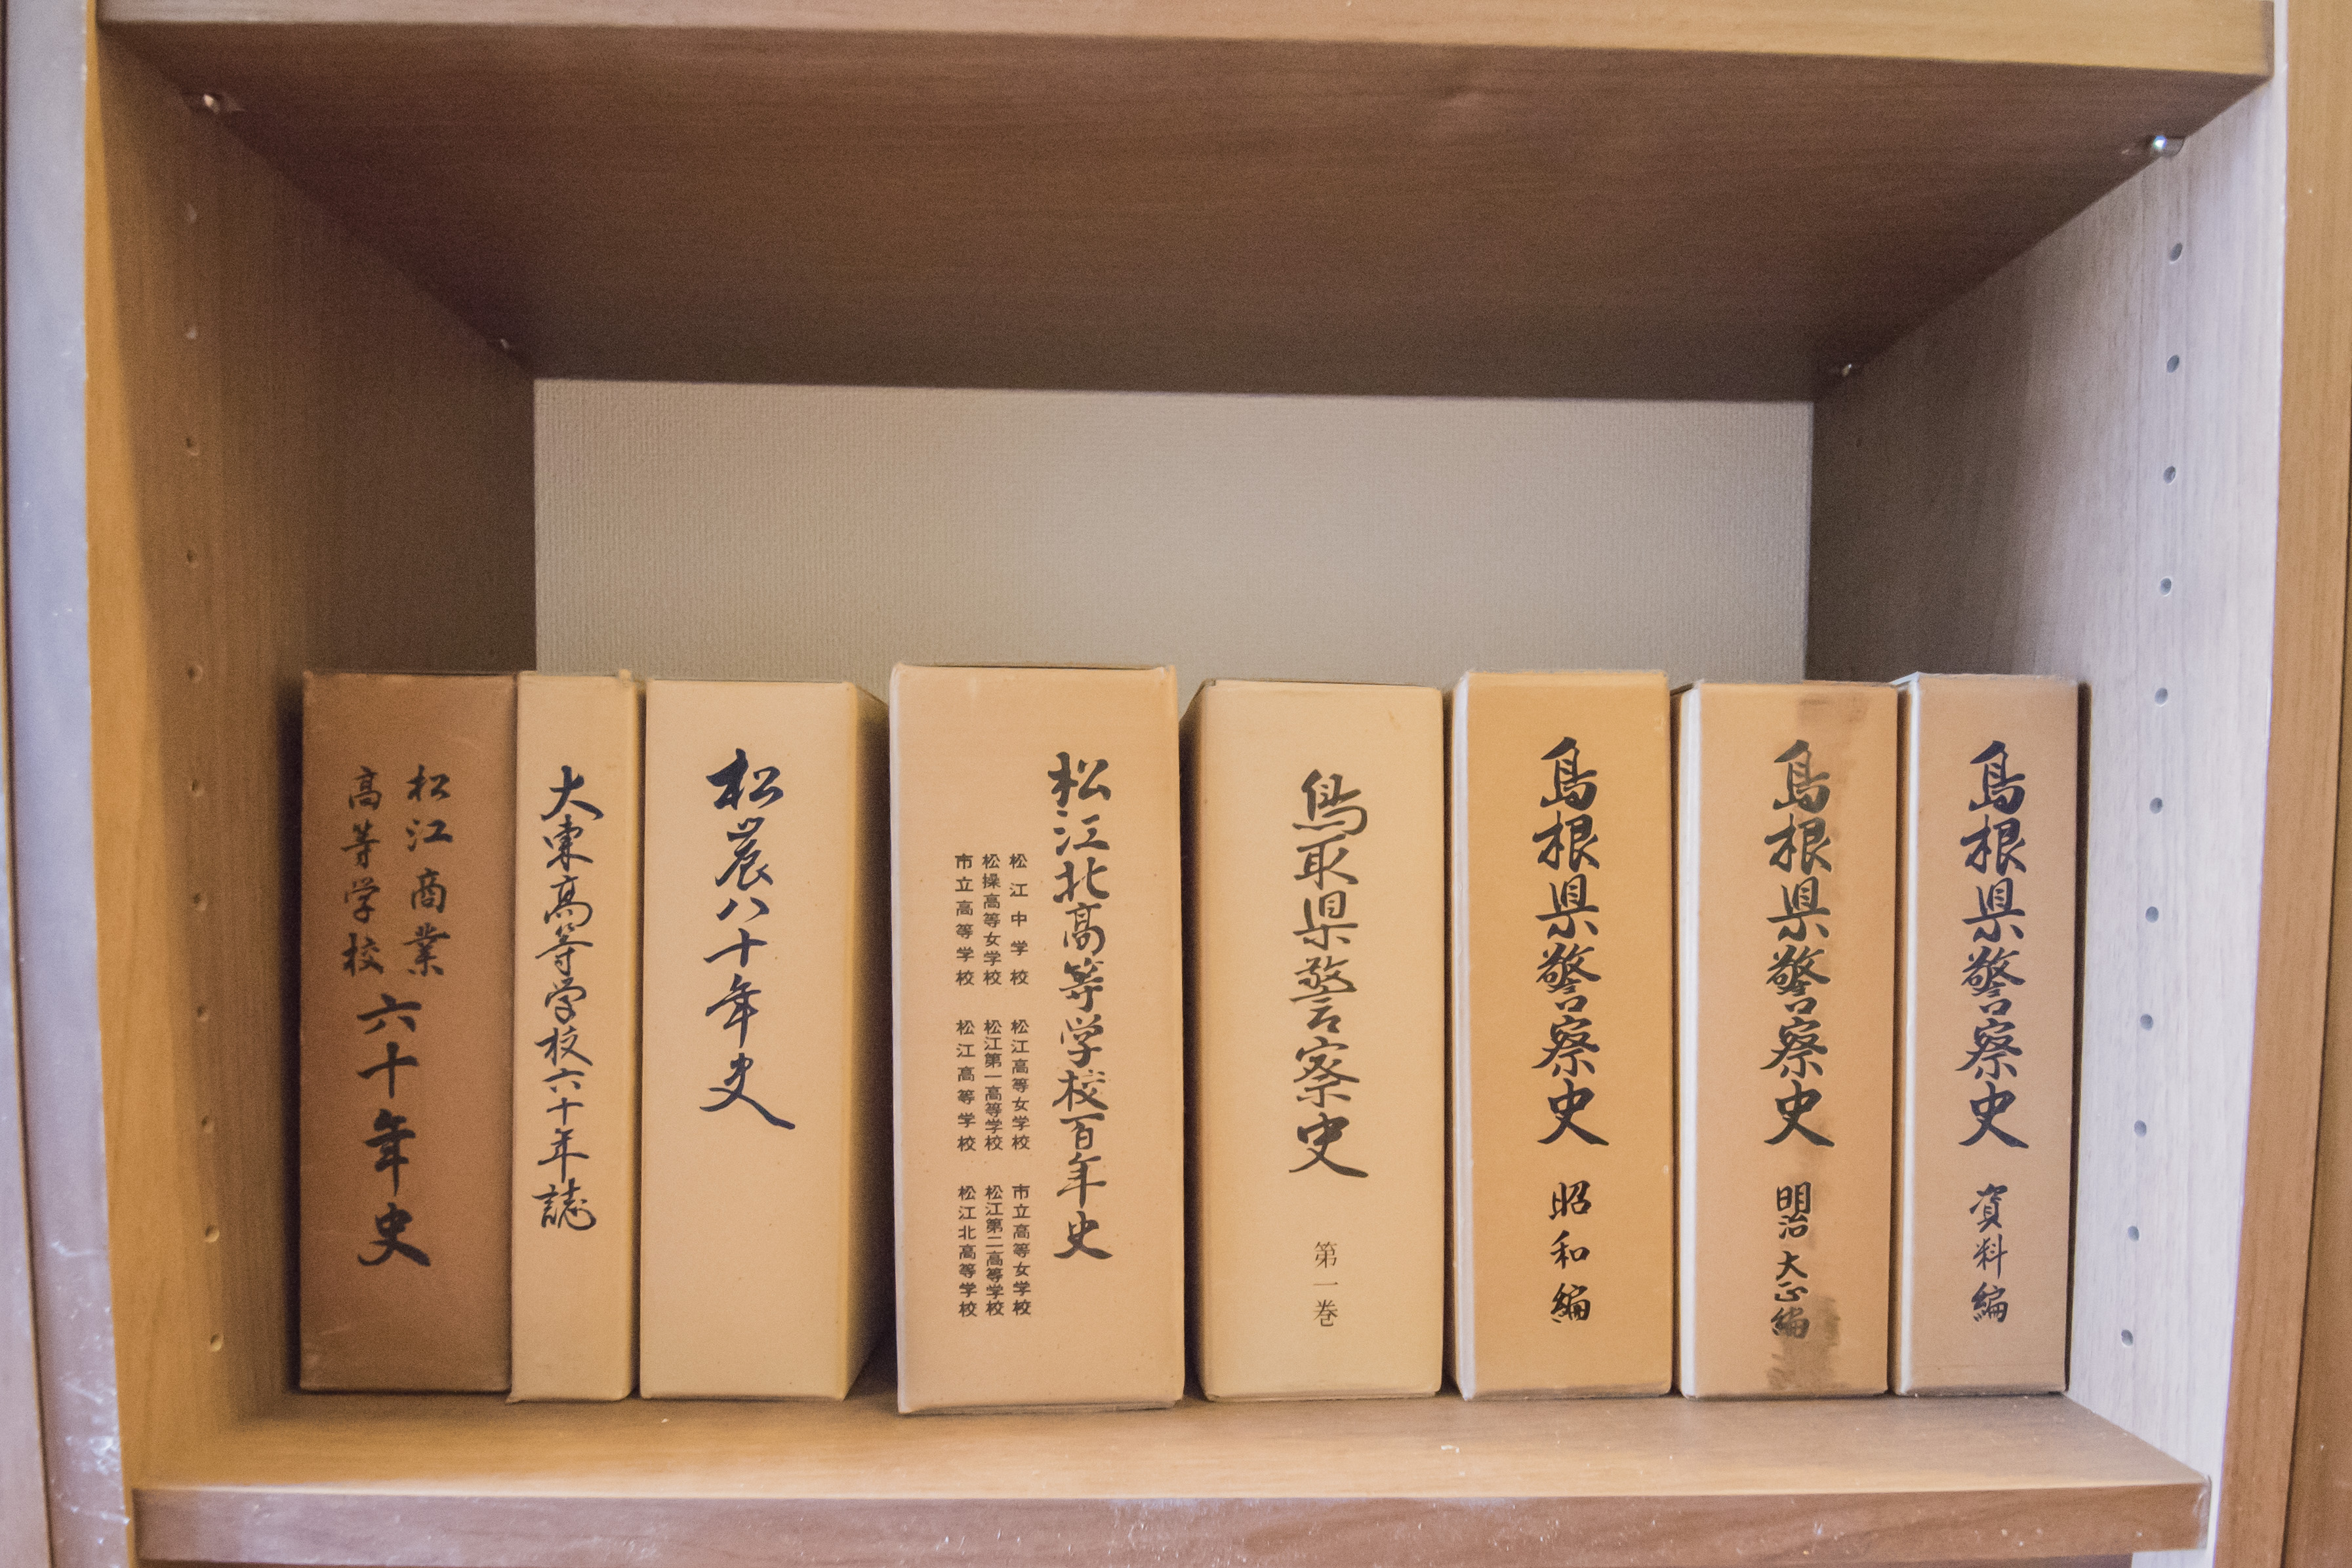 松江商業
高等学校
六十年史
大東高等学校六十年誌
松農八十年史
松江北高等学校百年史
松江中学校 松江高等女学校 市立高等女学校
松操高等女学校 松江第一高等学校 松江第二高等学校
市立高等学校 松江高等学校 松江北高等学校
鳥取県警察史 第一巻
島根県警察史 昭和編
島根県警察史 明治大正編
島根県警察史 資料編